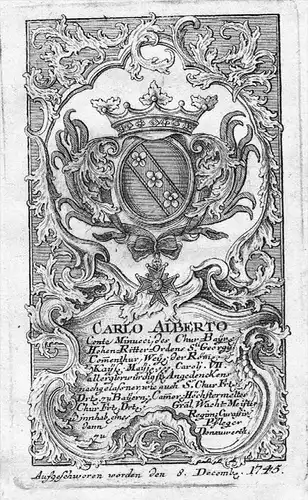 CARLO ALBERTO
Conte Minucci, des Chur Bayr.
Hohen Ritter Ordens S. Georgij
Comenthur, Weyl. der Röm.
Kayl. Mayjs. Carolj VII
allerglorwürdigst Angedenckens
nachgelasener wie auch S. Chur Frt.
Drt. zu Bayern, Camer, Hochsternelter
Chur Frt. Drt. Gral Wacht Meister
Innhab. eines Regim Curassir
dann Pfleger
zu Donauwerth.
Aufgeschworen worden den 8. Decemb. 1745.